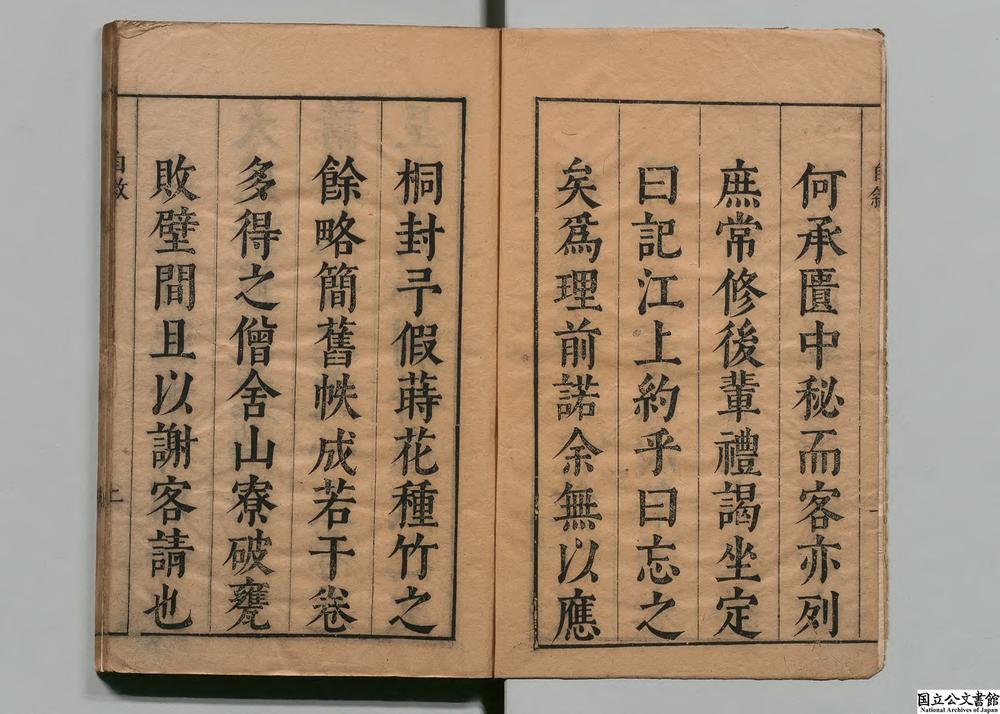 何承匱中秘而客亦列
庶常修後輩禮謁坐定
曰記江上約乎曰忘之
矣爲理前諾余無以應
桐封予假蒔花種竹之
餘略簡舊帙成若干卷
多得之僧舍山寮破甕
敗壁間且以謝客請也
自敘
上
国立公文書館
National Archives of Japan